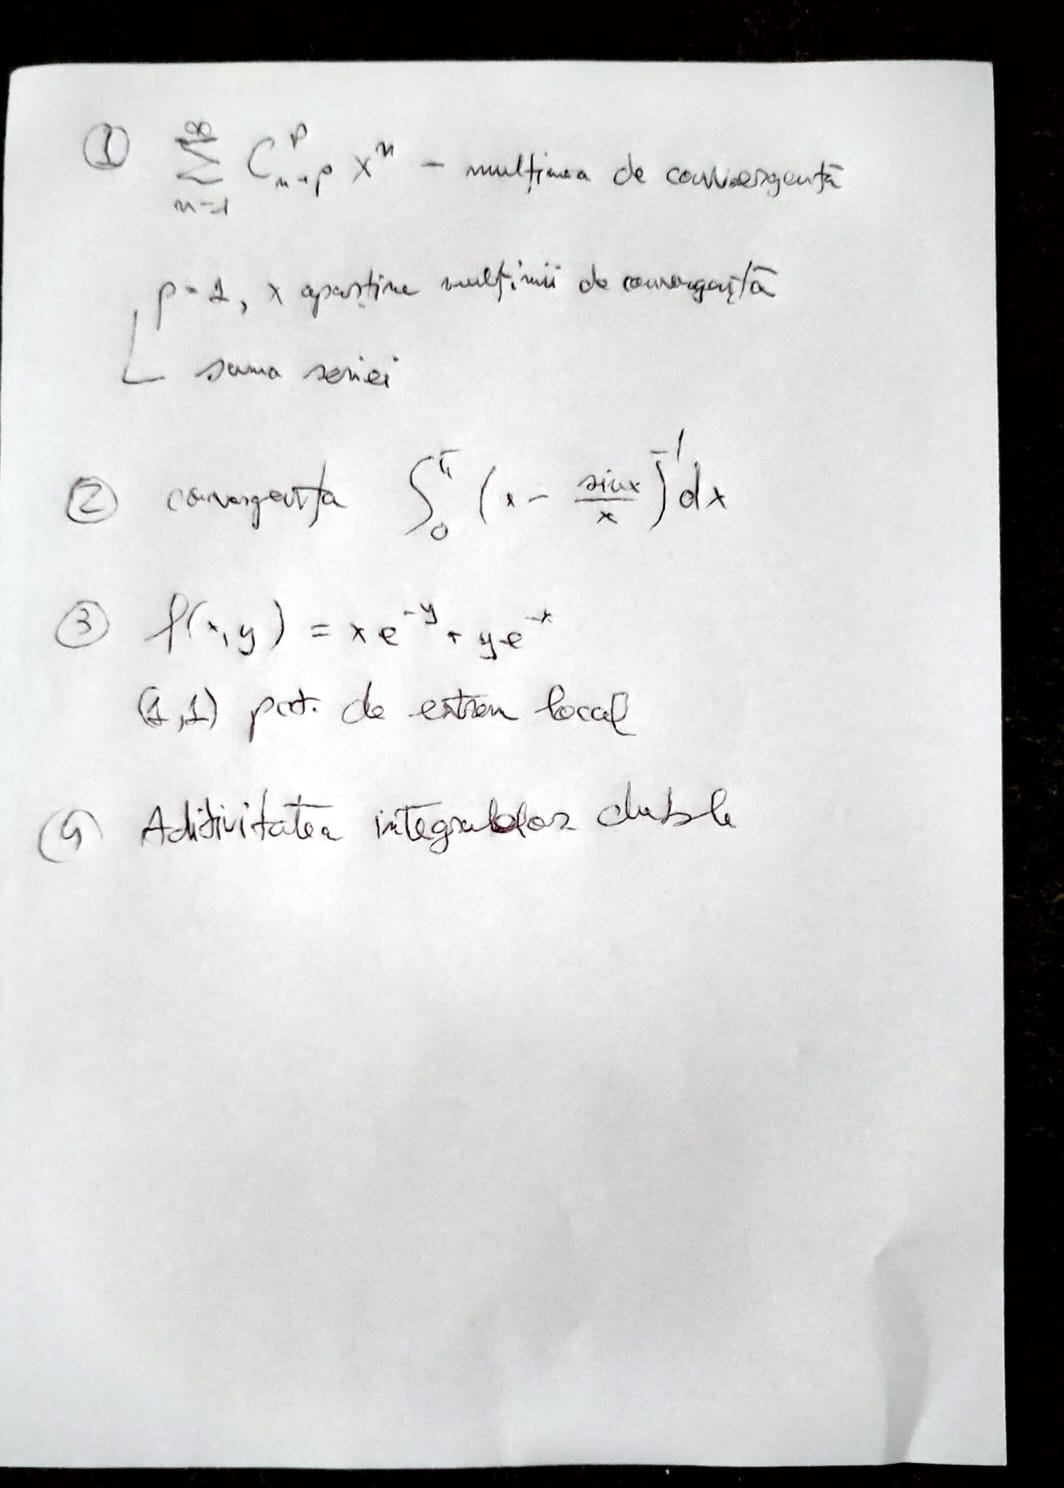 ① ∑_{n=1}^{∞} C_{n+p}^{p} x^n - mulțimea de convergență
p=1, x aparține mulțimii de convergență
suma seriei
② convergența ∫_0^π (x - sinx/x)^{-1} dx
③ f(x,y) = xe^{-y} + ye^{-x}
(1,1) pct. de extrem local
④ Aditivitatea integralelor duble